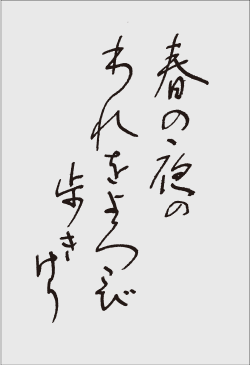 春の夜の
われをよろこび
歩きけり